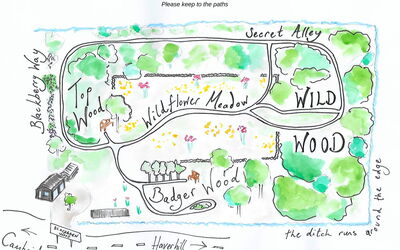 Please keep to the paths
Secret Alley
Blackberry Way
Top
Wood
Wildflower Meadow
WILD
WOOD
Badger Wood
the ditch runs around the edge
Haverhill